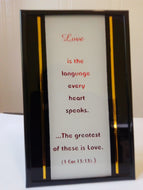 Love
is the
language
every
heart
speaks.
...The greatest
of these is Love.
(1 Cor 13:13)